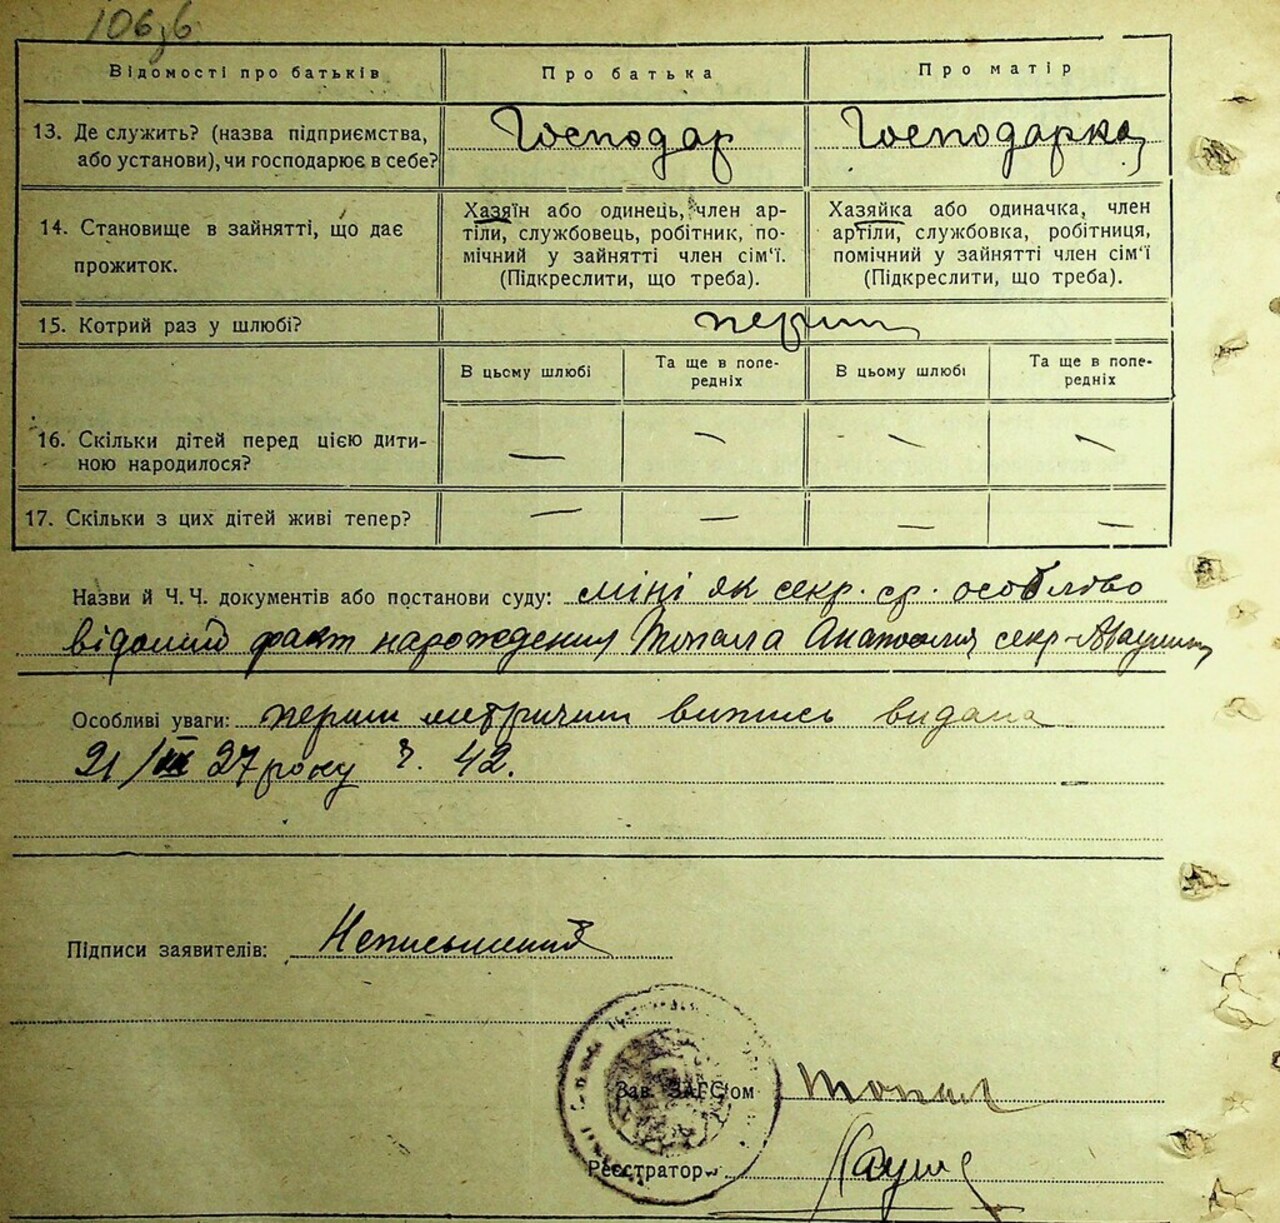 106зв
Відомості про батьків
Про батька
Про матір
13. Де служить? (назва підприємства,
або установи), чи господарює в себе?
Господар
Господарка
14. Становище в зайнятті, що дає
прожиток.
Хазяїн або одинець, член ар-
тіли, службовець, робітник, по-
мічний у зайнятті член сім'ї.
(Підкреслити, що треба).
Хазяйка або одиначка, член
артіли, службовка, робітниця,
помічний у зайнятті член сім'ї
(Підкреслити, що треба).
15. Котрий раз у шлюбі?
перший
В цьому шлюбі
Та ще в попе-
редніх
В цьому шлюбі
Та ще в попе-
редніх
16. Скільки дітей перед цією дити-
ною народилося?
— — — —
17. Скільки з цих дітей живі тепер?
— — — —
Назви й Ч. Ч. документів або постанови суду: міні як секр. ср. особливо
відомий факт народження Топала Анатолія секр
Особливі уваги: перший метричий випись видана
21/III 27 року ч. 42.
Підписи заявителів: Неписьменний
Зав. ЗАГС'ом Топал
Реєстратор